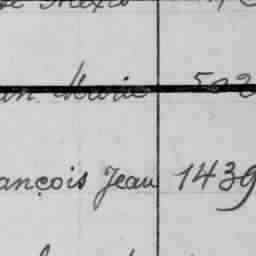 an Marie 502
ançois Jean 1439